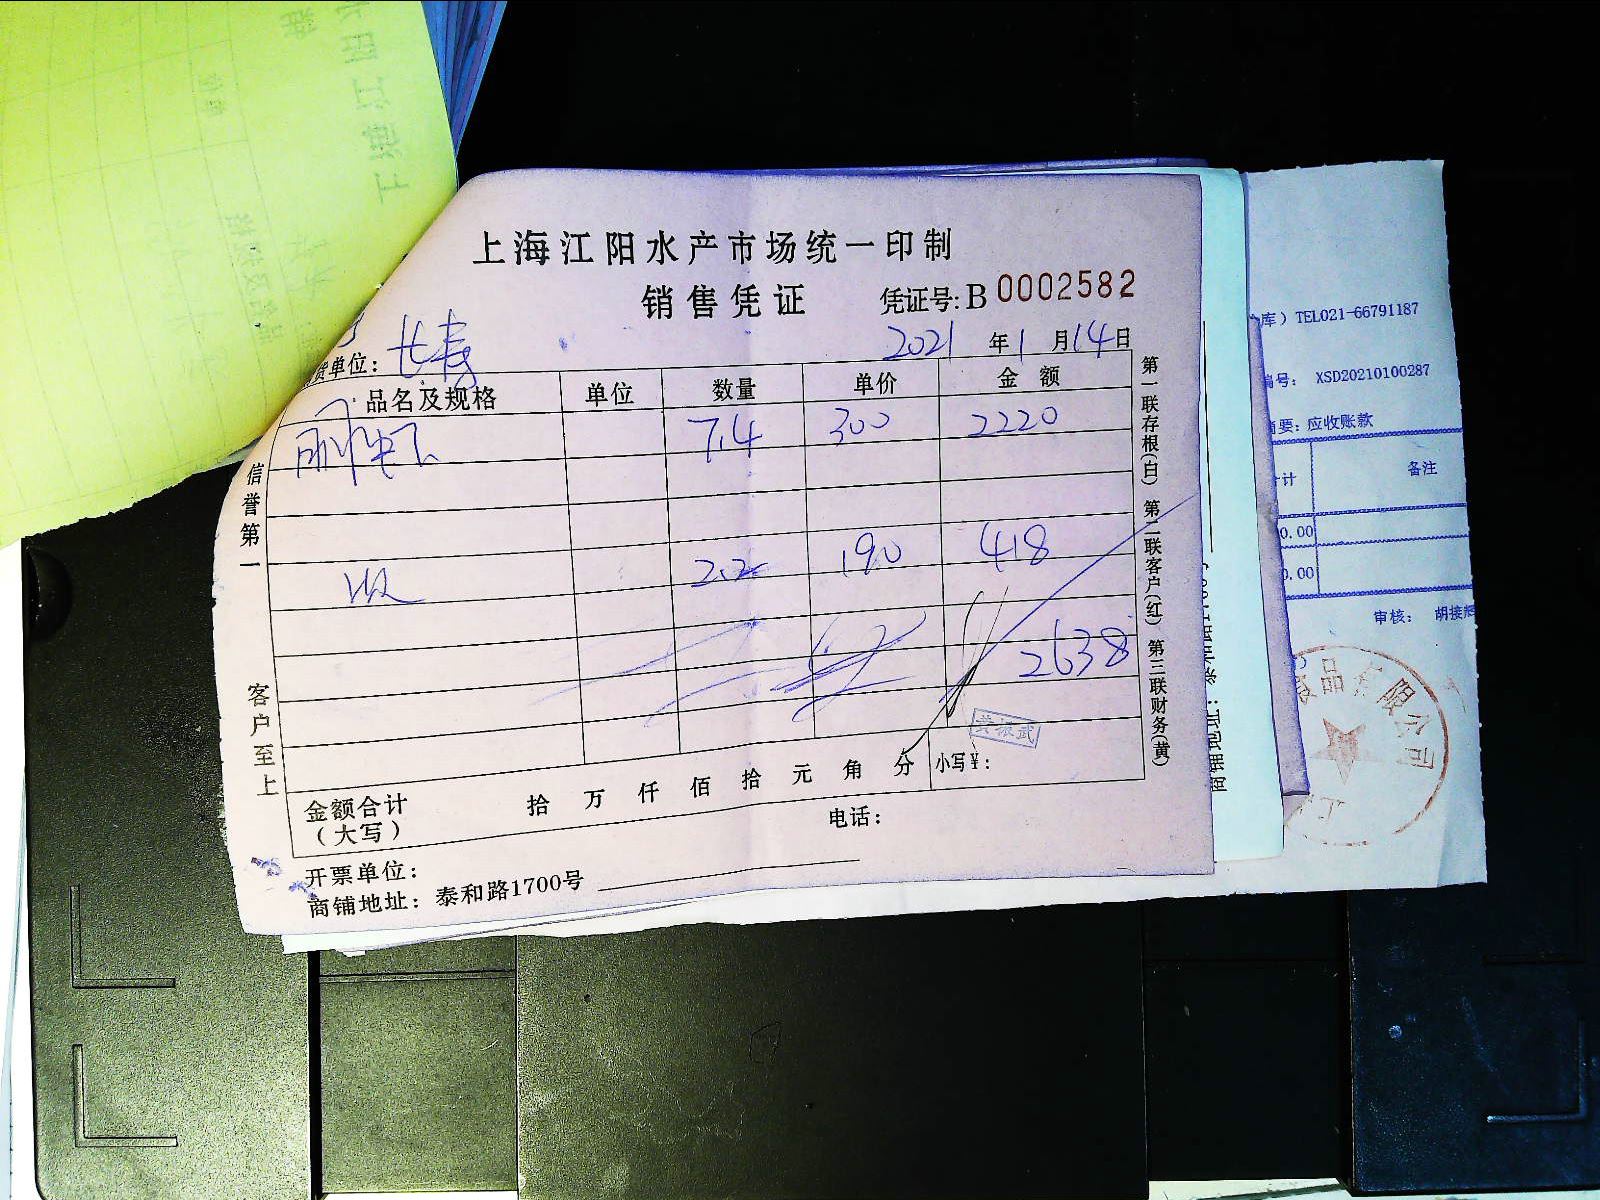 上海江阳水产市场统一印制
销售凭证 凭证号:B 0002582
2021 年 1 月 14 日
货单位: 长寿
品名及规格 单位 数量 单价 金额
7.4 300 2220
2.2 190 418
2638
金额合计
(大写)
拾 万 仟 佰 拾 元 角 分 小写¥:
开票单位: 电话:
商铺地址: 泰和路1700号
信誉第一
客户至上
第一联存根(白) 第二联客户(红) 第三联财务(黄)
库)TEL021-66791187
编号: XSD20210100287
摘要: 应收账款
计 备注
0.00
0.00
审核: 胡接辉
食品有限公司